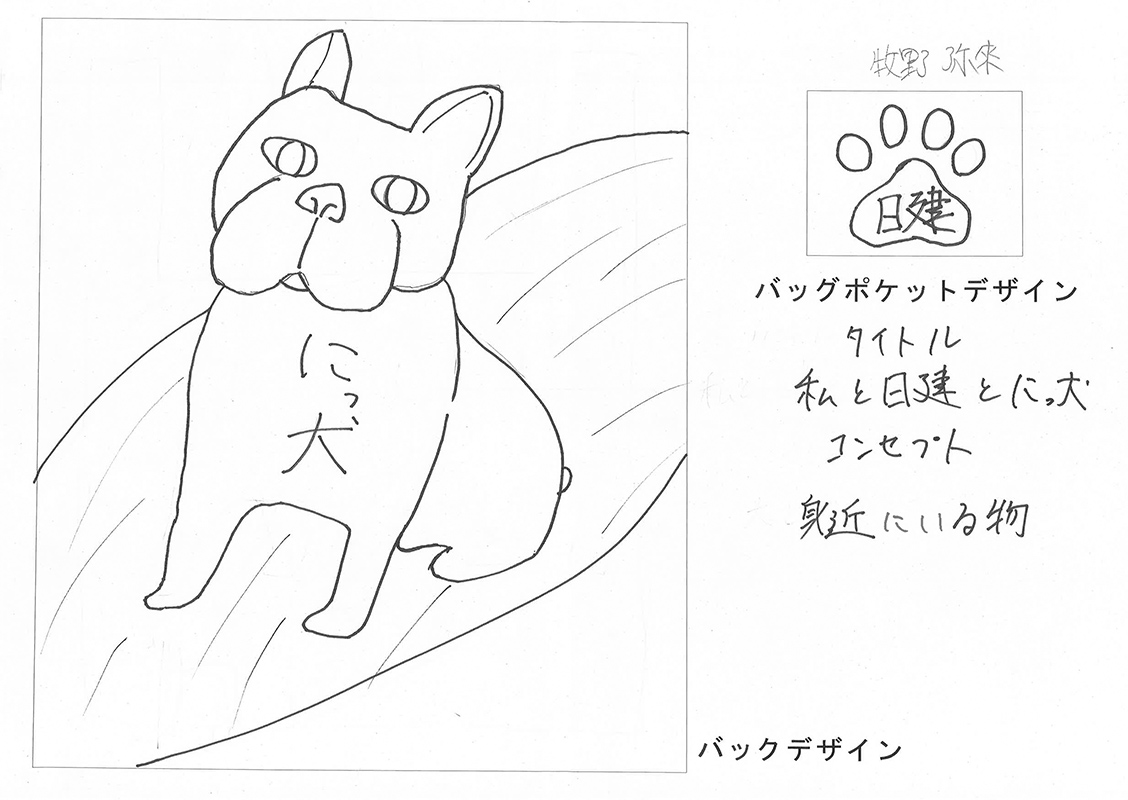 にっ犬
牧野 弥來
日建
バッグポケットデザイン
タイトル
私と日建とにっ犬
コンセプト
身近にいる物
バックデザイン